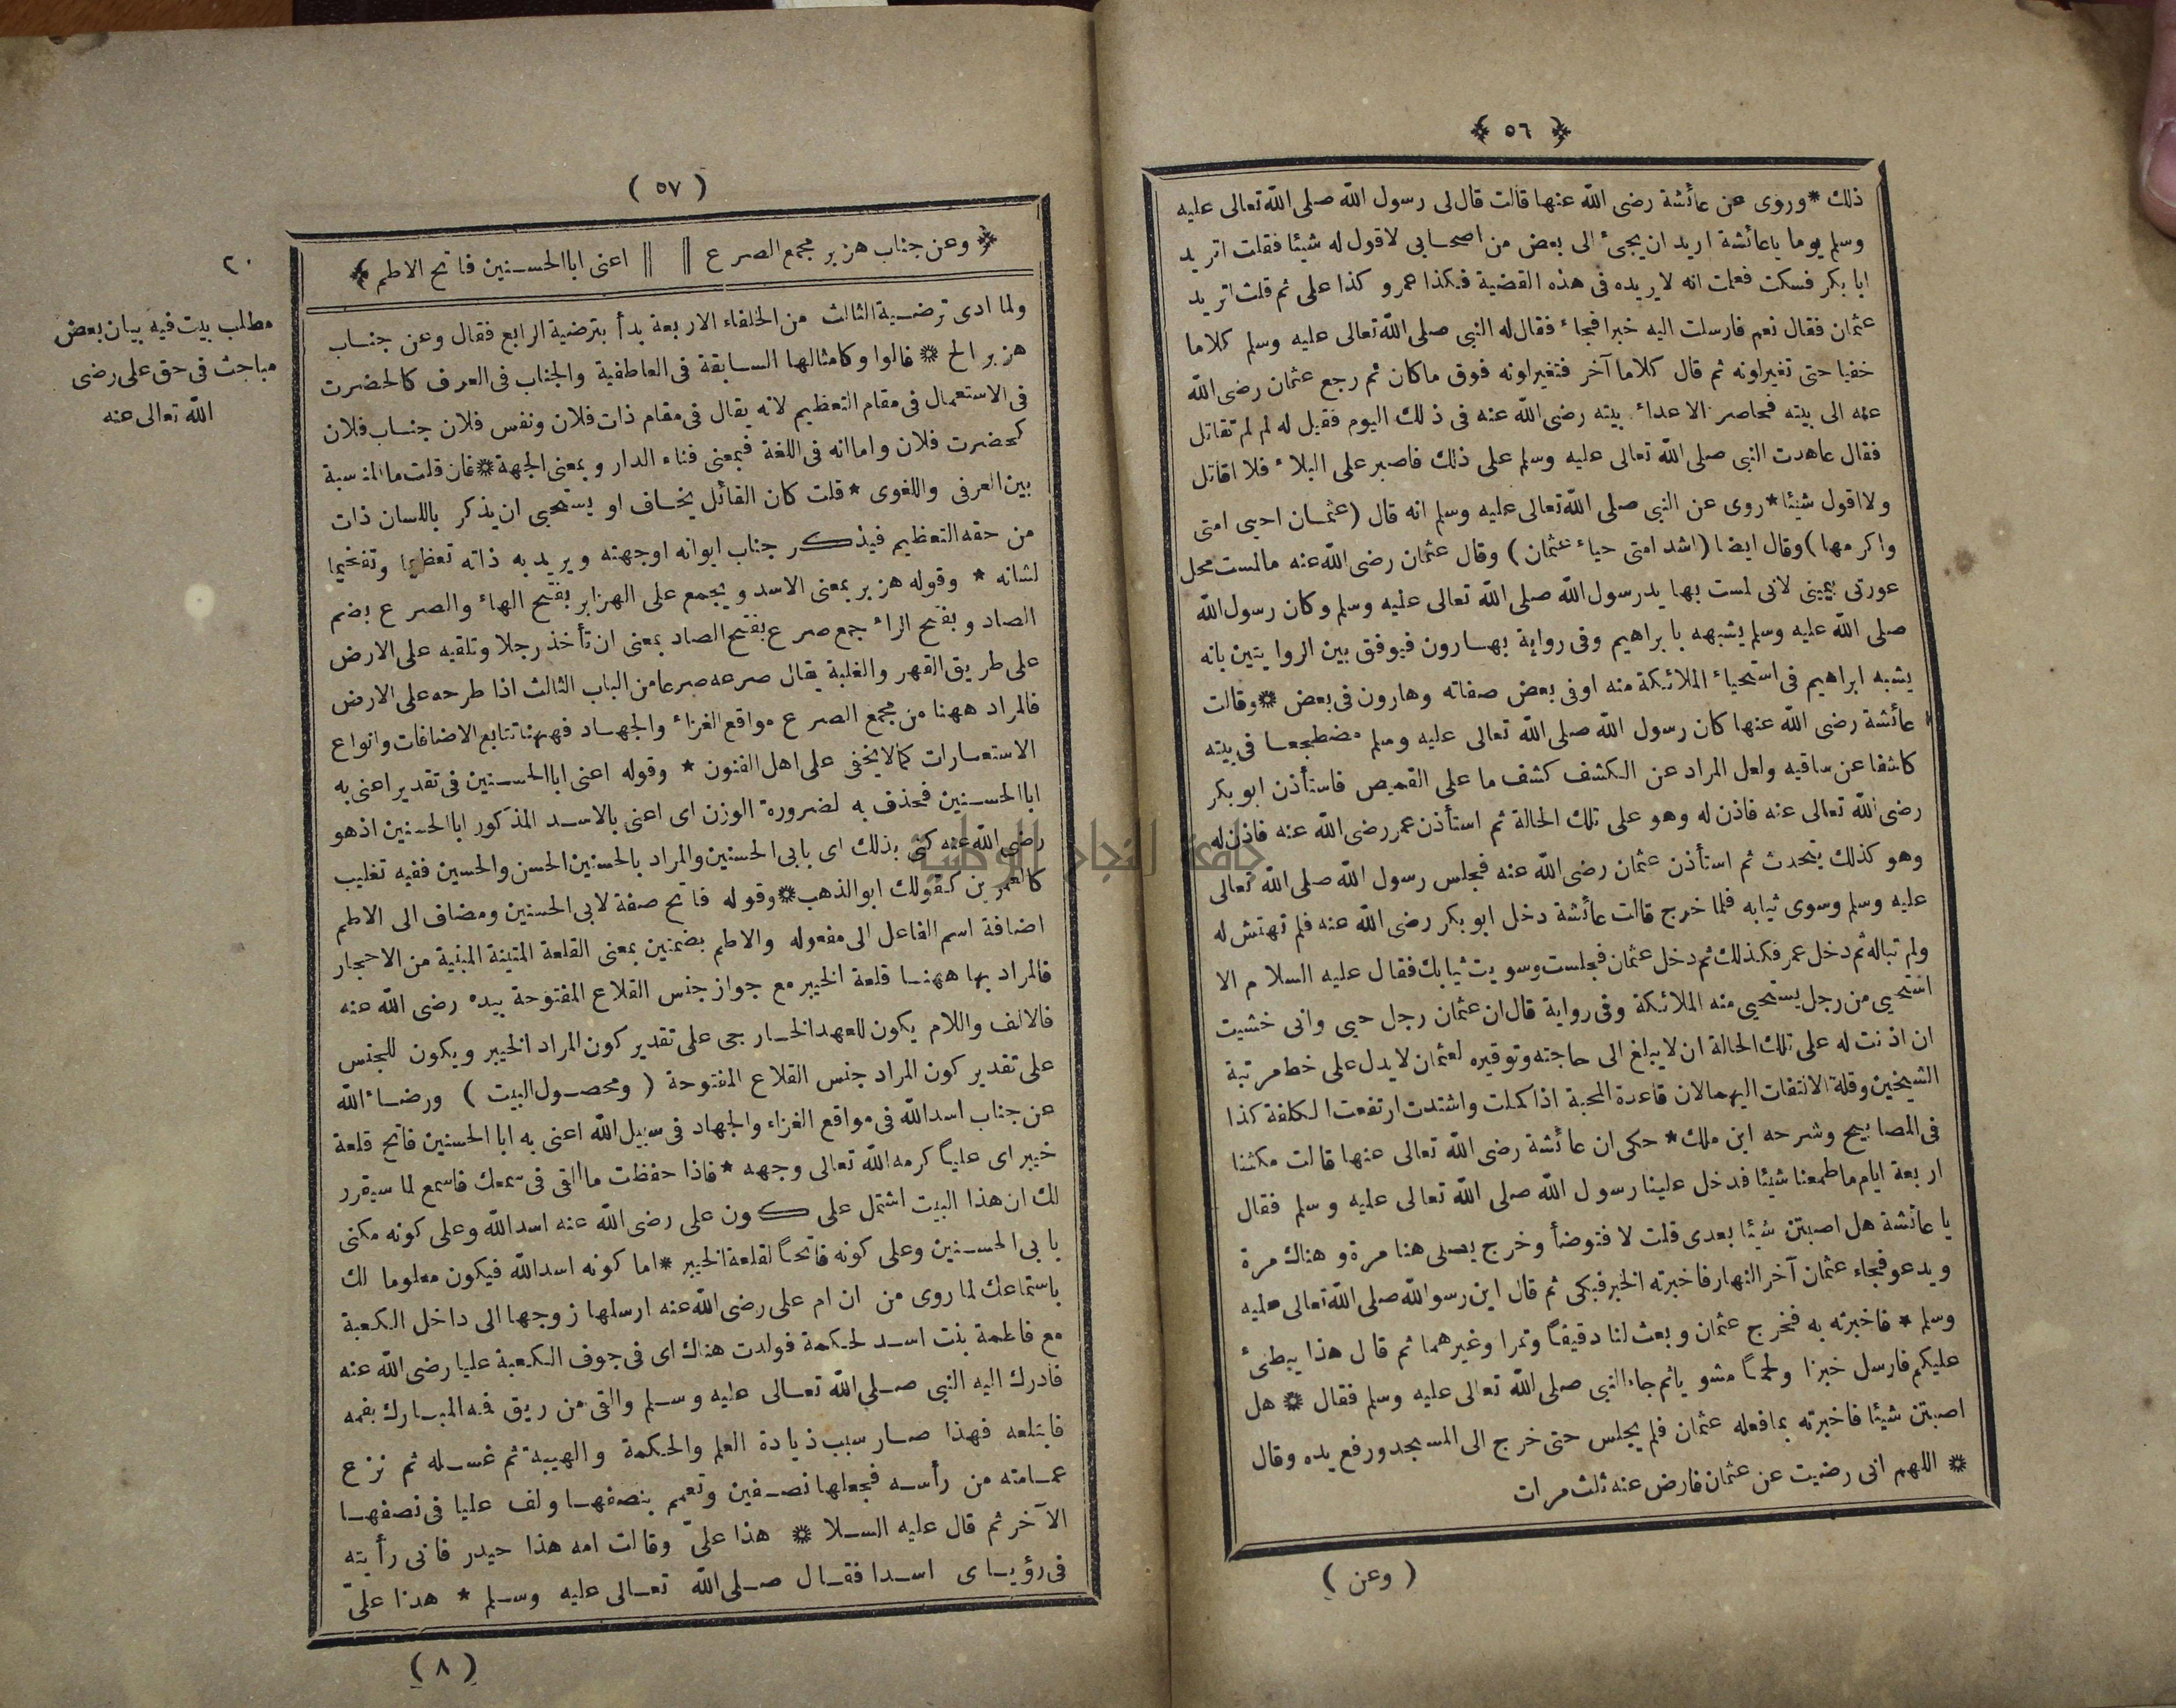 ﴿ ٥٦ ﴾
ذلك * وروى عن عائشة رضى الله عنها قالت قال لى رسول الله صلى الله تعالى عليه
وسلم يوما يا عائشة اريد ان يجئ الى بعض من اصحابى لاقول له شيئا فقلت اتريد
ابا بكر فسكت فعلمت انه لا يريده فى هذه القضية فكذا عمرو كذا على ثم قلت اتريد
عثمان فقال نعم فارسلت اليه خبرا فجاء فقال له النبى صلى الله تعالى عليه وسلم كلاما
خفيا حتى تغير لونه ثم قال كلاما آخر فتغير لونه فوق ما كان ثم رجع عثمان رضى الله
عنه الى بيته فحاصر الاعداء بيته رضى الله عنه فى ذلك اليوم فقيل له لم لم تقاتل
فقال عاهدت النبى صلى الله تعالى عليه وسلم على ذلك فاصبر على البلاء فلا اقاتل
ولا اقول شيئا * روى عن النبى صلى الله تعالى عليه وسلم انه قال (عثمان احيى امتى
واكرمها) وقال ايضا (اشد امتى حياء عثمان) وقال عثمان رضى الله عنه مالمست محل
عورتى بيمينى لانى لمست بها يد رسول الله صلى الله تعالى عليه وسلم وكان رسول الله
صلى الله عليه وسلم يشبهه بابراهيم وفى رواية بهارون فيوفق بين الروايتين بانه
يشبه ابراهيم فى استحياء الملائكة منه اوفى بعض صفاته وهارون فى بعض * وقالت
عائشة رضى الله عنها كان رسول الله صلى الله تعالى عليه وسلم مضطجعا فى بيته
كاشفا عن ساقيه ولعل المراد عن الكشف كشف ما على القميص فاستأذن ابو بكر
رضى الله تعالى عنه فاذن له وهو على تلك الحالة ثم استأذن عمر رضى الله عنه فاذن له
وهو كذلك يتحدث ثم استأذن عثمان رضى الله عنه فجلس رسول الله صلى الله تعالى
عليه وسلم وسوى ثيابه فلما خرج قالت عائشة دخل ابو بكر رضى الله عنه فلم تهتش له
ولم تباله ثم دخل عمر فكذلك ثم دخل عثمان فجلست وسويت ثيابك فقال عليه السلام الا
استحيى من رجل يستحيى منه الملائكة وفى رواية قال ان عثمان رجل حيى وانى خشيت
ان اذنت له على تلك الحالة ان لا يبلغ الى حاجته وتوقيره لعثمان لا يدل على خط مرتبة
الشيخين وقلة الالتفات اليهما لان قاعدة المحبة اذا كملت واشتدت ارتفعت الكلفة كذا
فى المصابيح وشرحه ابن ملك * حكى ان عائشة رضى الله تعالى عنها قالت مكثنا
اربعة ايام ما طعمنا شيئا فدخل علينا رسول الله صلى الله تعالى عليه وسلم فقال
يا عائشة هل اصبتن شيئا بعدى قلت لا فتوضأ وخرج يصلى هنا مرة وهناك مرة
ويدعو فجاء عثمان آخر النهار فاخبرته الخبر فبكى ثم قال اين رسو الله صلى الله تعالى عليه
وسلم * فاخبرته به فخرج عثمان وبعث لنا دقيقاً وتمرا وغيرهما ثم قال هذا يبطئ
عليكم فارسل خبزا ولحماً مشويا ثم جاء النبى صلى الله تعالى عليه وسلم فقال * هل
اصبتن شيئا فاخبرته بما فعله عثمان فلم يجلس حتى خرج الى المسجد ورفع يده وقال
* اللهم انى رضيت عن عثمان فارض عنه ثلث مرات
( وعن )
( ٥٧ )
﴿ وعن جناب هزبر مجمع الصرع || || اعنى ابا الحسنين فاتح الاطم ﴾
٢٠
مطلب بيت فيه بيان بعض
مباحث فى حق على رضى
الله تعالى عنه
ولما ادى ترضية الثالث من الخلفاء الاربعة بدأ بترضية الرابع فقال وعن جناب
هزبر الخ * فالوا وكامثالها السابقة فى العاطفية والجناب فى العرف كالحضرت
فى الاستعمال فى مقام التعظيم لانه يقال فى مقام ذات فلان ونفس فلان جناب فلان
كحضرت فلان واما انه فى اللغة فبمعنى فناء الدار وبمعنى الجهة * فان قلت ما المنسبة
بين العرفى واللغوى * قلت كان القائل يخاف او يستحيى ان يذكر باللسان ذات
من حقه التعظيم فيذكر جناب ايوانه اوجهته ويريد به ذاته تعظيما وتفخيما
لشانه * وقوله هزبر بمعنى الاسد ويجمع على الهزابر بفتح الهاء والصرع بضم
الصاد وبفتح الراء جمع صرع بفتح الصاد بمعنى ان تأخذ رجلا وتلقيه على الارض
على طريق القهر والغلبة يقال صرعه صرعا من الباب الثالث اذا طرحه على الارض
فالمراد ههنا من مجمع الصرع مواقع الغزاء والجهاد فههنا تتابع الاضافات وانواع
الاستعارات كمالا يخفى على اهل الفنون * وقوله اعنى ابا الحسنين فى تقدير اعنى به
ابا الحسنين فحذف به لضرورة الوزن اى اعنى بالاسد المذكور ابا الحسنين اذهو
رضى الله عنه كنى بذلك اى بابى الحسنين والمراد بالحسنين الحسن والحسين ففيه تغليب
كالعمرين كقولك ابو الذهب * وقوله فاتح صفة لابى الحسنين ومضاف الى الاطم
اضافة اسم الفاعل الى مفعوله والاطم بضمتين بمعنى القلعة المتينة المبنية من الاحجار
فالمراد بها ههنا قلعة الخيبر مع جواز جنس القلاع المفتوحة بيده رضى الله عنه
فالالف واللام يكون للعهد الخارجى على تقدير كون المراد الخيبر ويكون للجنس
على تقدير كون المراد جنس القلاع المفتوحة ( ومحصول البيت ) ورضاء الله
عن جناب اسد الله فى مواقع الغزاء والجهاد فى سبيل الله اعنى به ابا الحسنين فاتح قلعة
خيبر اى علياً كرمه الله تعالى وجهه * فاذا حفظت ما القى فى سمعك فاسمع لما سيقرر
لك ان هذا البيت اشتمل على كون على رضى الله عنه اسد الله وعلى كونه مكنى
بابى الحسنين وعلى كونه فاتحاً لقلعة الخيبر * اما كونه اسد الله فيكون معلوما لك
باستماعك لما روى من ان ام على رضى الله عنه ارسلها زوجها الى داخل الكعبة
مع فاطمة بنت اسد لحكمة فولدت هناك اى فى جوف الكعبة عليا رضى الله عنه
فادرك اليه النبى صلى الله تعالى عليه وسلم والقى من ريق فه المبارك بفمه
فابتلعه فهذا صار سبب زيادة العلم والحكمة والهيبة ثم غسله ثم نزع
عمامته من رأسه فجعلها نصفين وتعمم بنصفها ولف عليا فى نصفها
الآخر ثم قال عليه السلا * هذا علىّ وقالت امه هذا حيدر فانى رأيته
فى رؤياى اسدا فقال صلى الله تعالى عليه وسلم * هذا علىّ
( ٨ )
جامعة النجاح الوطنية